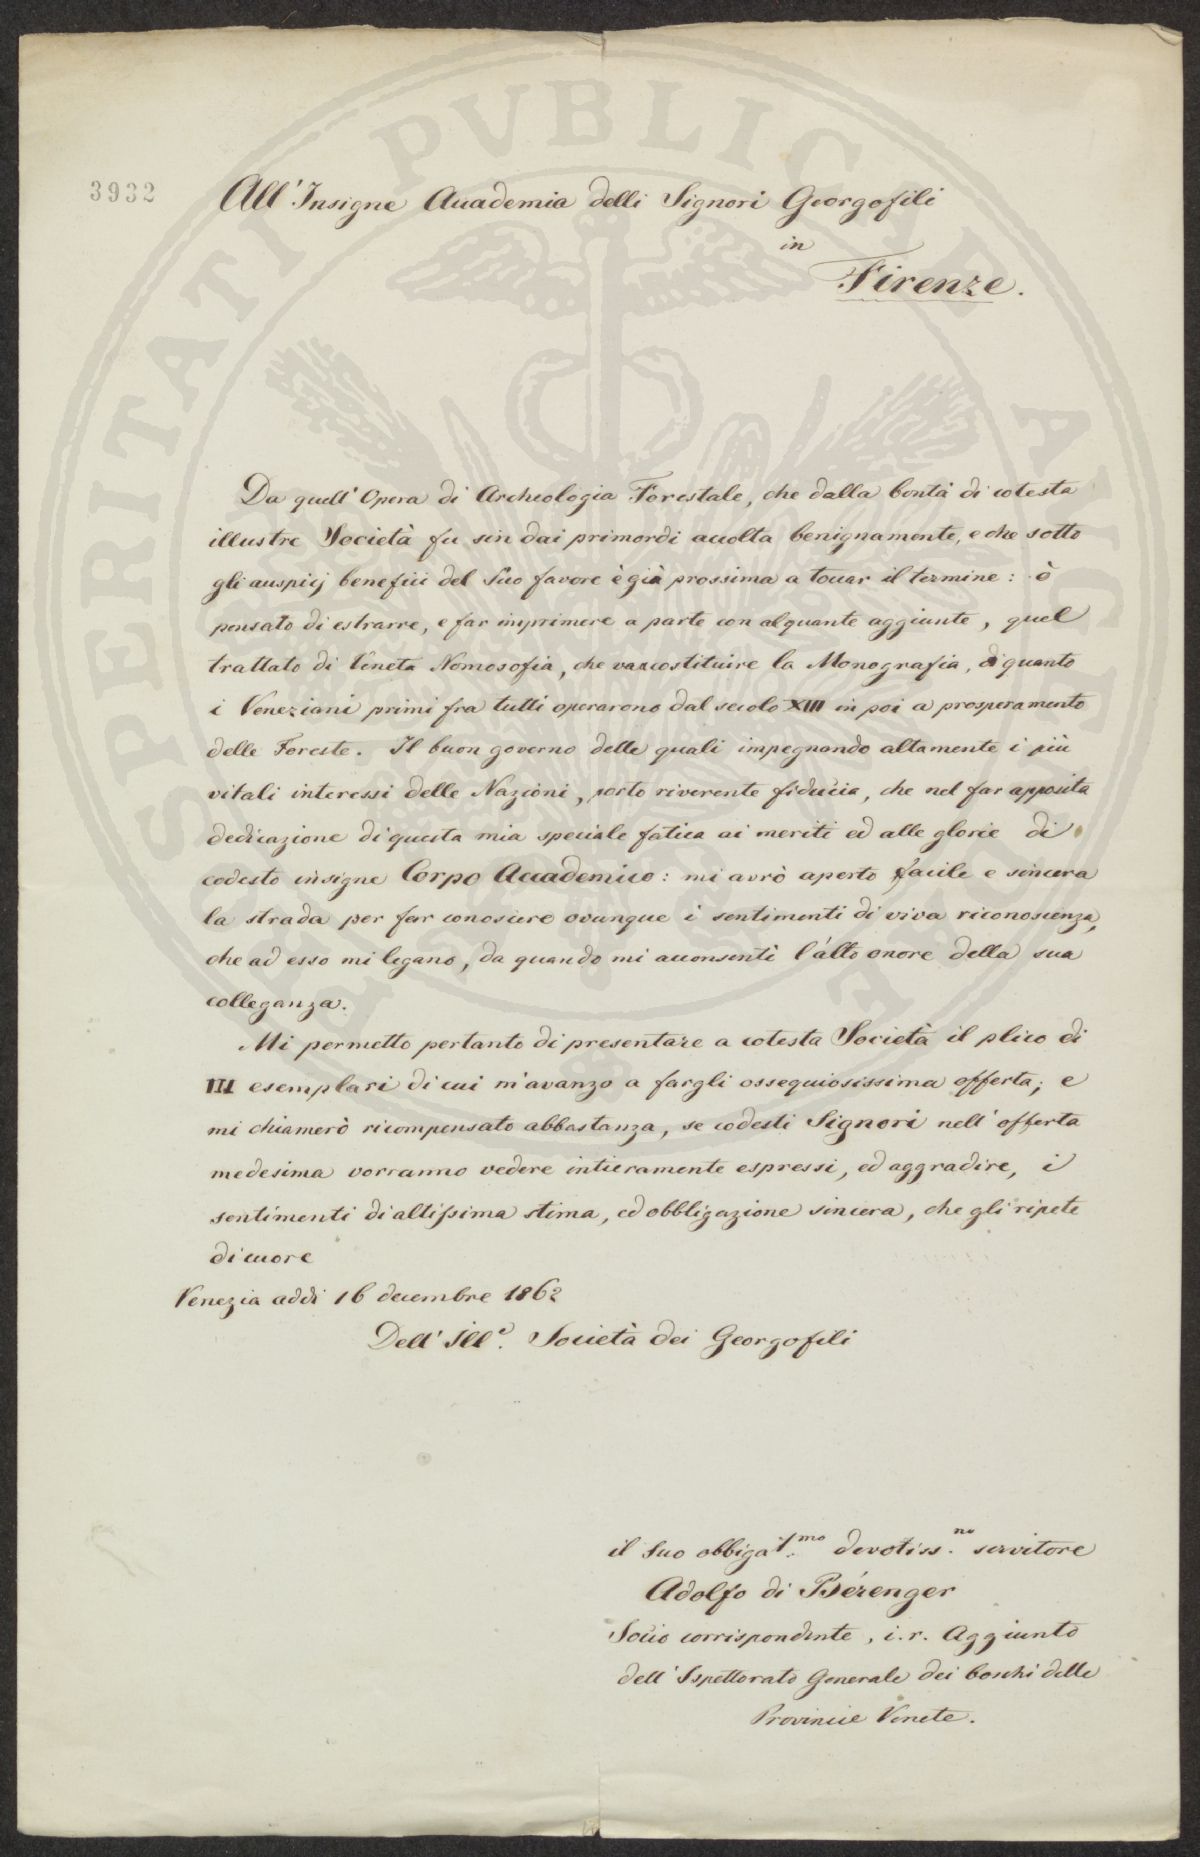 PROSPERITATI PVBLICAE AVGENDAE
3932
All'Insigne Accademia delli Signori Georgofili
in
Firenze.
Da quell'Opera di Archeologia Forestale, che dalla bontà di cotesta
illustre Società fu sin dai primordi accolta benignamente, e che sotto
gli auspicj beneficii del Suo favore è già prossima a toccar il termine: ò
pensato di estrarre, e far imprimere a parte con alquante aggiunte, quel
trattato di Veneta Nomosofia, che va costituire la Monografia, di quanto
i Veneziani primi fra tutti operarono dal secolo XIII in poi a prosperamento
delle Foreste. Il buon governo delle quali impegnando altamente i più
vitali interessi delle Nazioni, porto riverente fiducia, che nel far apposita
dedicazione di questa mia speciale fatica ai meriti ed alle glorie di
codesto insigne Corpo Accademico: mi avrò aperto facile e sincera
la strada per far conoscere ovunque i sentimenti di viva riconoscenza,
che ad esso mi legano, da quando mi acconsentì l'alto onore della sua
colleganza.
Mi permetto pertanto di presentare a cotesta Società il plico di
III esemplari di cui m'avanzo a fargli ossequiosissima offerta; e
mi chiamerò ricompensato abbastanza, se codesti Signori nell'offerta
medesima vorranno vedere intieramente espressi, ed aggradire, i
sentimenti di altissima stima, ed obbligazione sincera, che gli ripete
di cuore
Venezia addì 16 decembre 1862
Dell'Ill.e Società dei Georgofili
il Suo obbligat.mo devotiss.mo servitore
Adolfo di Bérenger
Socio corrispondente, i.r. Aggiunto
dell'Ispettorato Generale dei boschi delle
Provincie Venete.